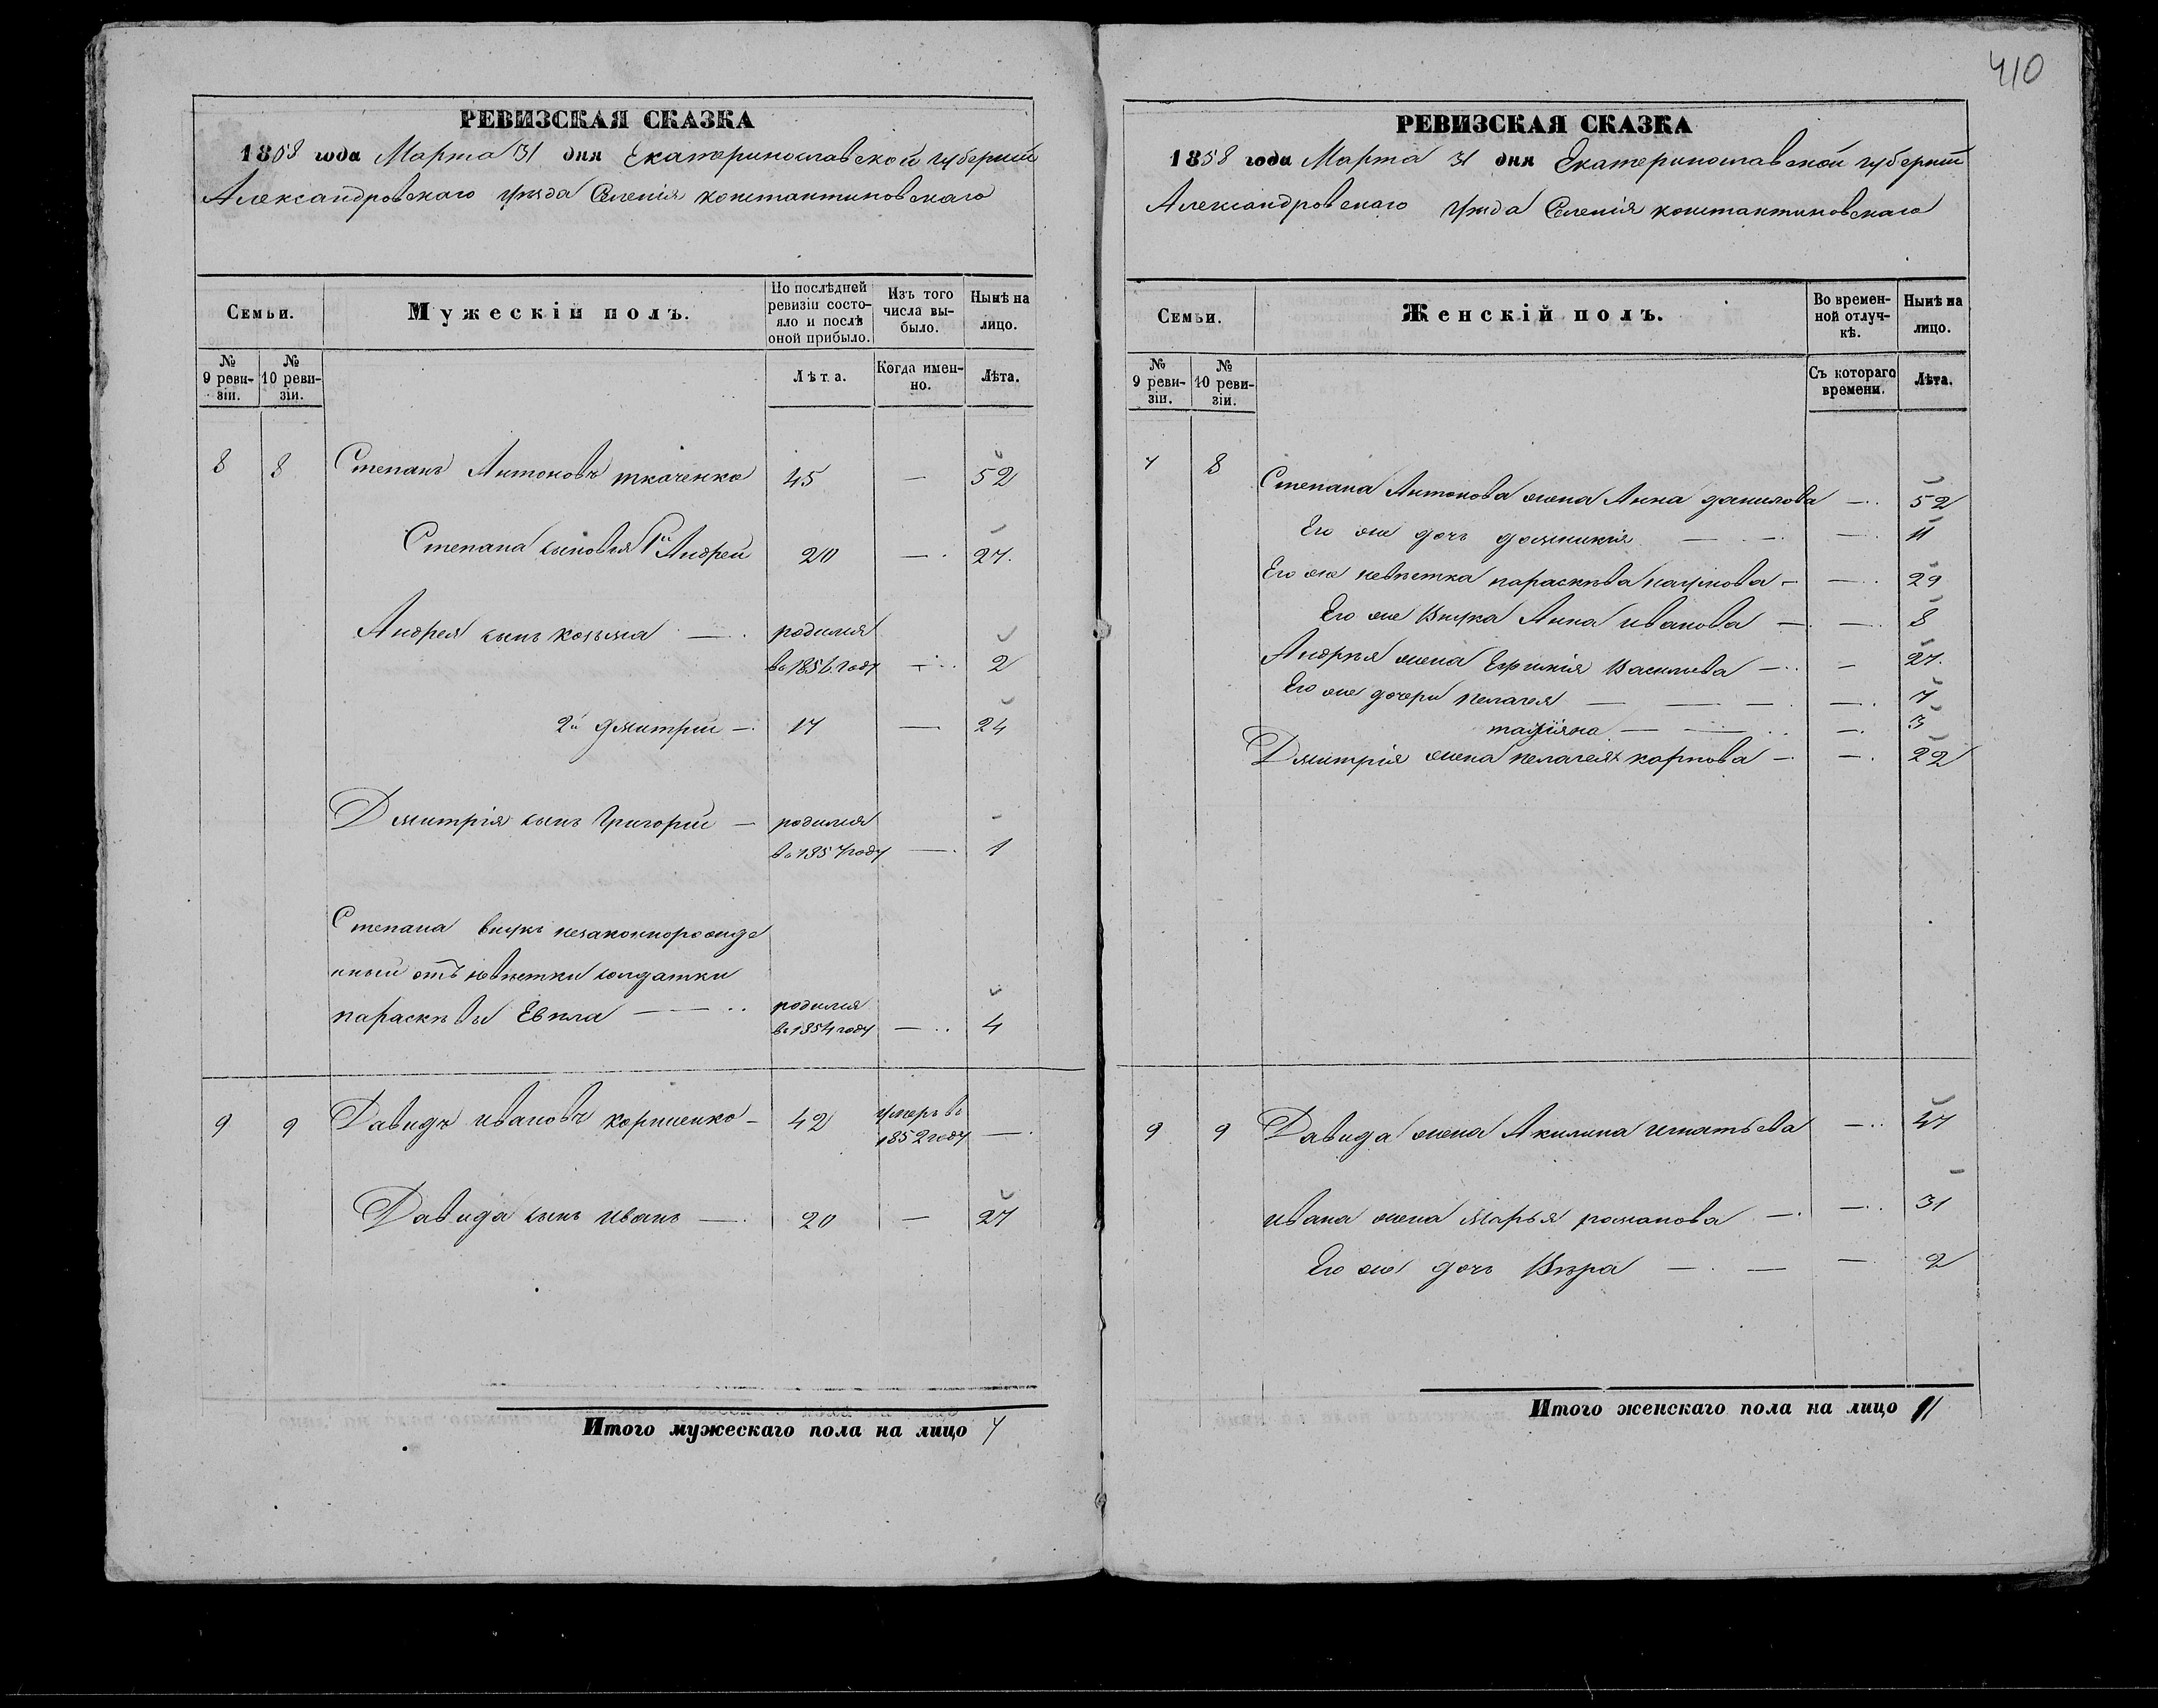 410
РЕВИЗСКАЯ СКАЗКА
1858 года Марта 31 дня Екатеринославской губернии
Александровскаго уѣзда Селенія константиновскаго
Семьи.
Мужескій полъ.
По послѣдней ревизіи состояло и послѣ оной прибыло.
Изъ того числа выбыло.
Нынѣ на лицо.
№ 9 ревизіи.
№ 10 ревизіи.
Лѣта.
Когда именно.
Лѣта.
8 8 Степанъ Антоновъ ткаченко 45 — 52
Степана сыновья 1й Андрей 20 — 27.
Андрея сынъ козьма — родился
во 1856 году — 2
2й дмитрій — 17 — 24
Дмитрія сынъ Григорій — родился
во 1857 году — 1
Степана внукъ незаконнорожде
нный отъ невѣстки солдатки
параскѣвы Евпла — родился
во 1854 году — 4
9 9 Давидъ ивановъ корниенко — 42 умеръ въ
1852 году —
Давида сынъ иванъ — 20 — 27
Итого мужескаго пола на лицо 7
РЕВИЗСКАЯ СКАЗКА
1858 года Марта 31 дня Екатеринославской губерніи
Александровскаго уѣзда Селенія константиновскаго
Семьи.
Женскій полъ.
Во временной отлучкѣ.
Нынѣ на лицо.
№ 9 ревизіи.
№ 10 ревизіи.
Съ котораго времени.
Лѣта.
8
Степана Антонова жена Анна данилова — 52
Его же дочь домникія — — 11
Его же невѣстка параскѣва наумова — — 29
Его же Внука Анна иванова — — 8
Андрѣя жена Ефимія Васильева — — 27.
Его же дочери пелагея — — 7
татіяна — — 3
Дмитрія жена пелагея карпова — — 22
9 9 Давида жена Акилина игнатьева — 47
ивана жена марья романова — — 31
Его же дочь Вѣра — — 2
Итого женскаго пола на лицо 11